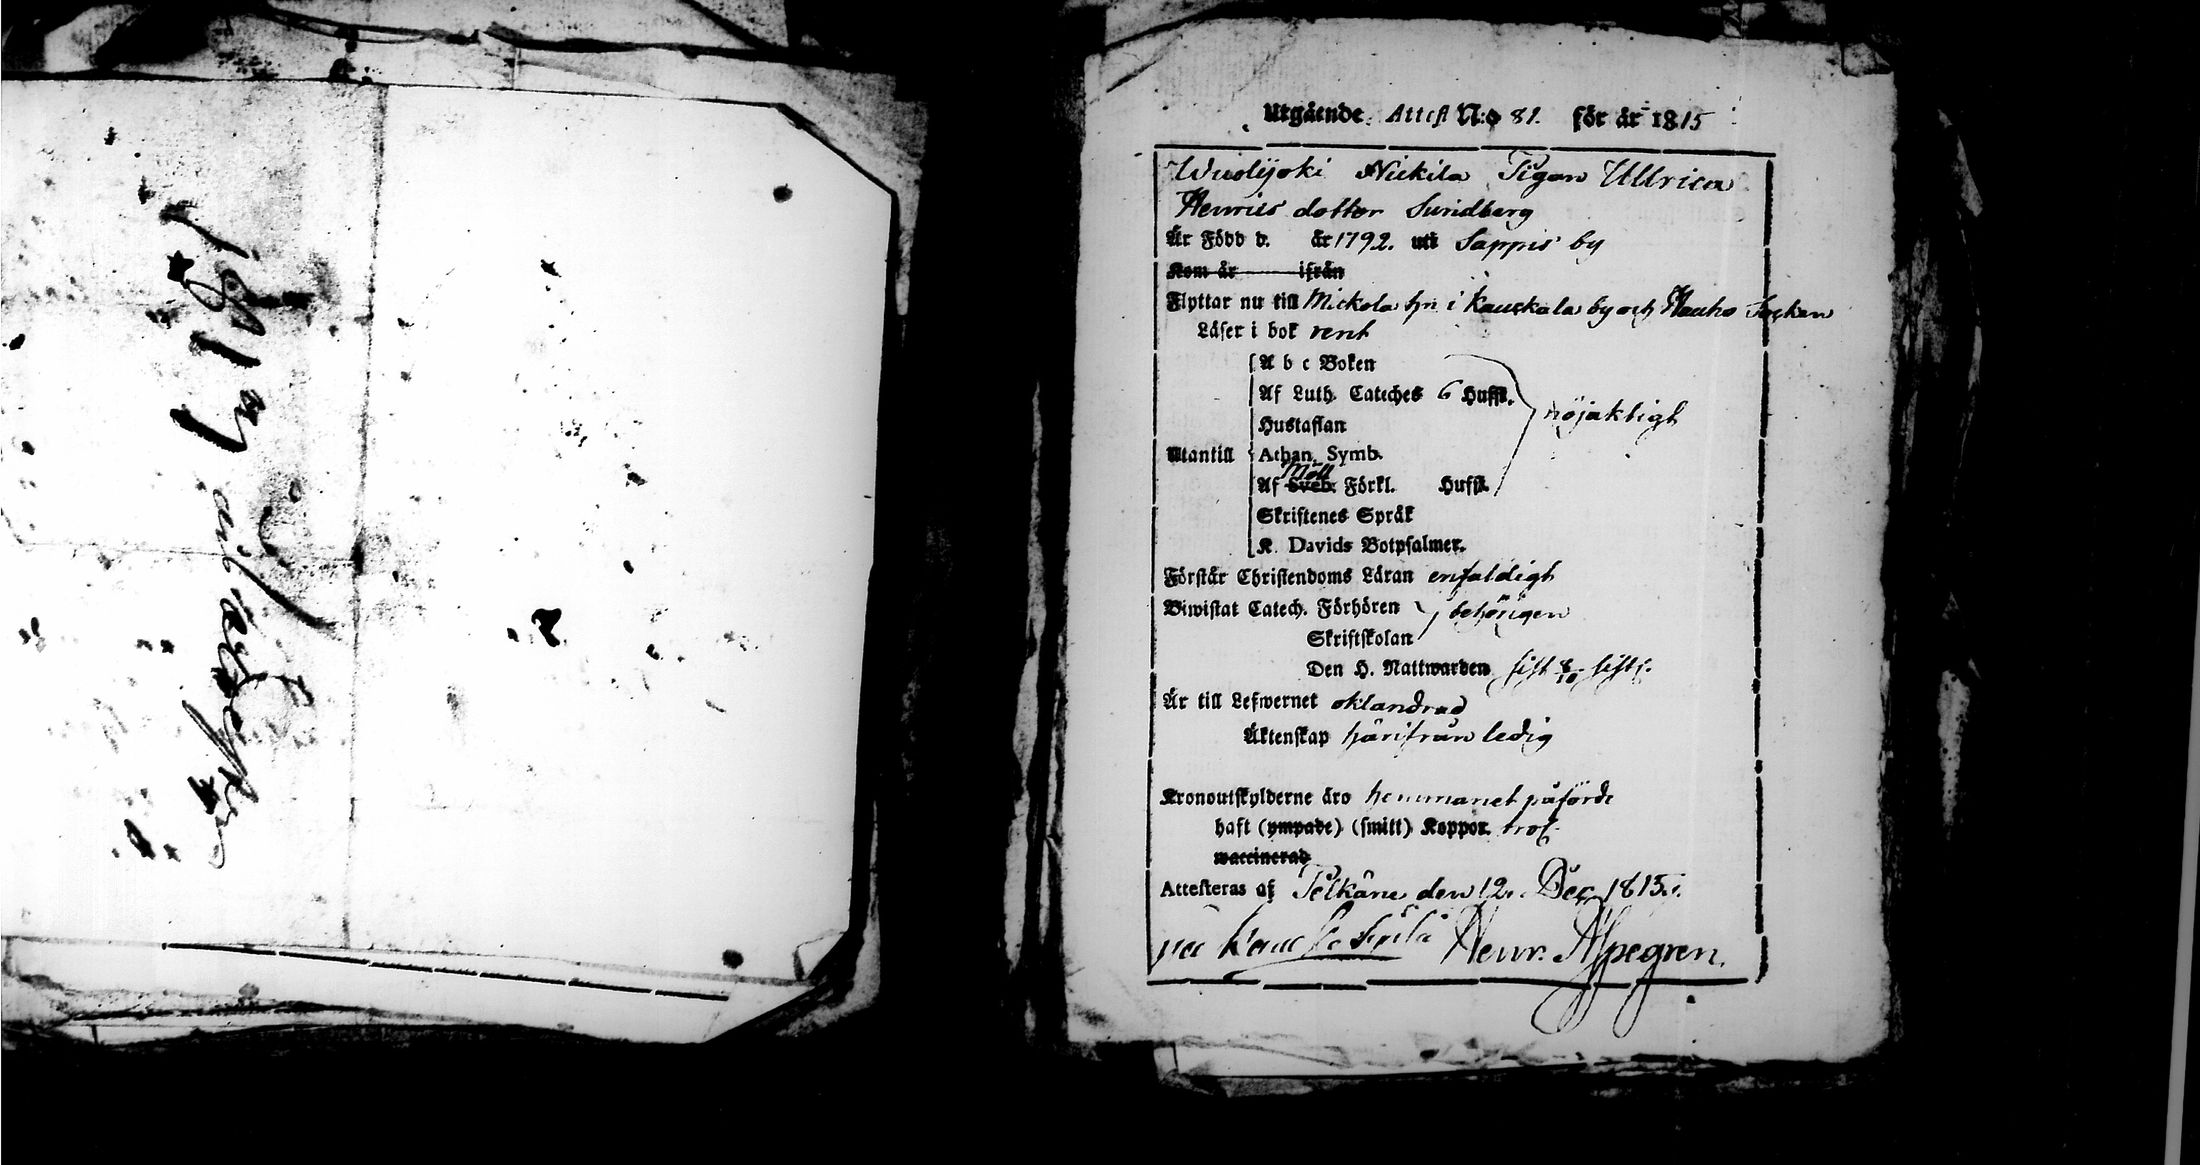 1819
Utgående Attest N:o 81. för år 1815
Wuolijoki Nickila Pigan Ullrica
Henrics dotter Sundberg
Är Född d. år 1792. uti Sappis by
Kom år ifrån
Flyttar nu till Mickola hn i Kauskala by och Hauho Socken
Läser i bok rent
A b c Boken
Af Luth. Cateches 6 Hufst.
nöjaktigt
Hustaflan
Utantill Athan. Symb.
Möll
Af Sveb. Förkl. Hufst.
Skriftenes Språk
K. Davids Botpsalmer.
Förstår Christendoms Läran enfaldigt
Biwistat Catech. Förhören behörigen
Skriftskolan
Den H. Nattwarden sist 8/10 sistl.
Är till Lefwernet oklandrad
Äktenskap härifrån ledig
Kronoutskylderne äro hemmanet påförde
haft (ympade) (smitt) Koppor. trol.
waccinerad
Attesteras af Pelkäne den 12. Dec. 1815.
Henr. Alpegren.